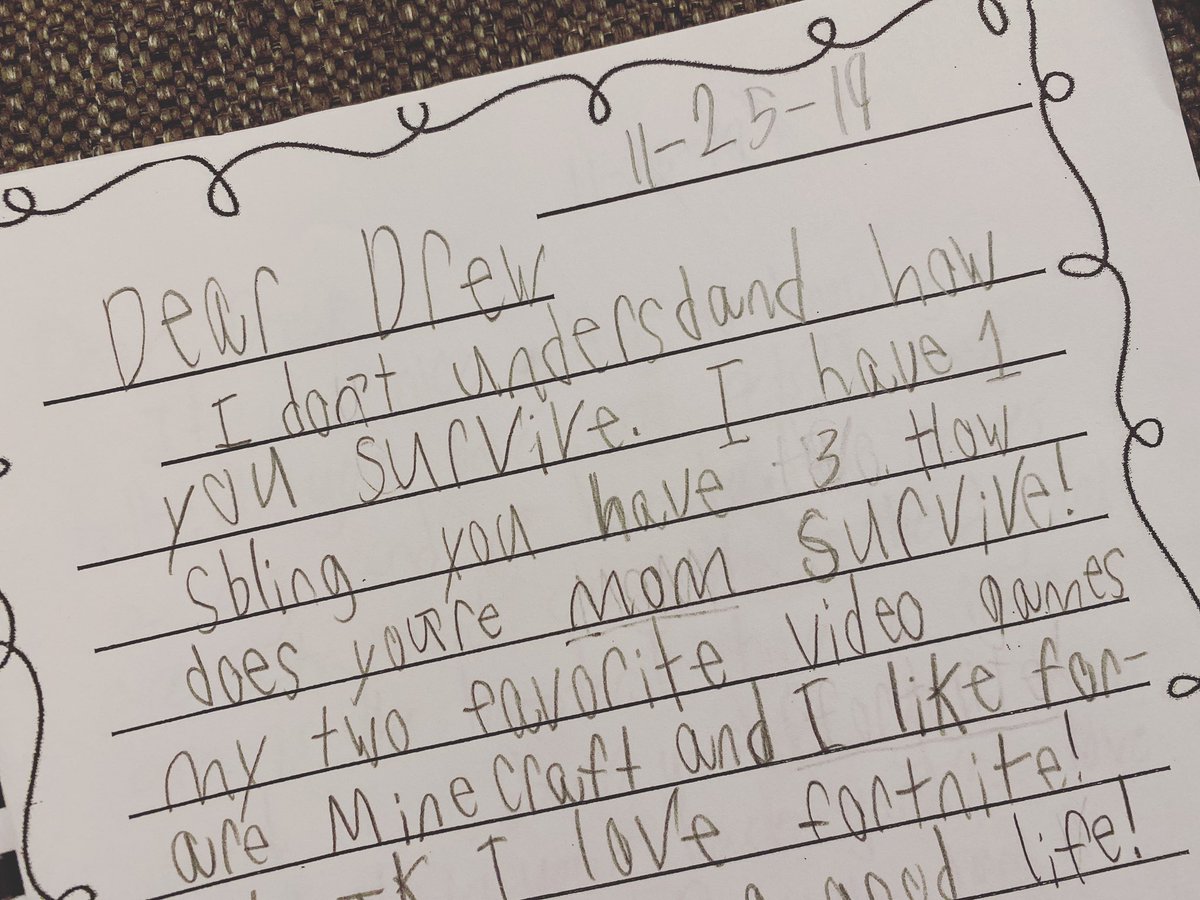 11-25-19
Dear Drew
I don't undersdand how
you survive. I have 1
sbling. you have 3. How
does you're mom survive!
my two favorite video games
are Minecraft and I like for-
I love fortnite!
good life!